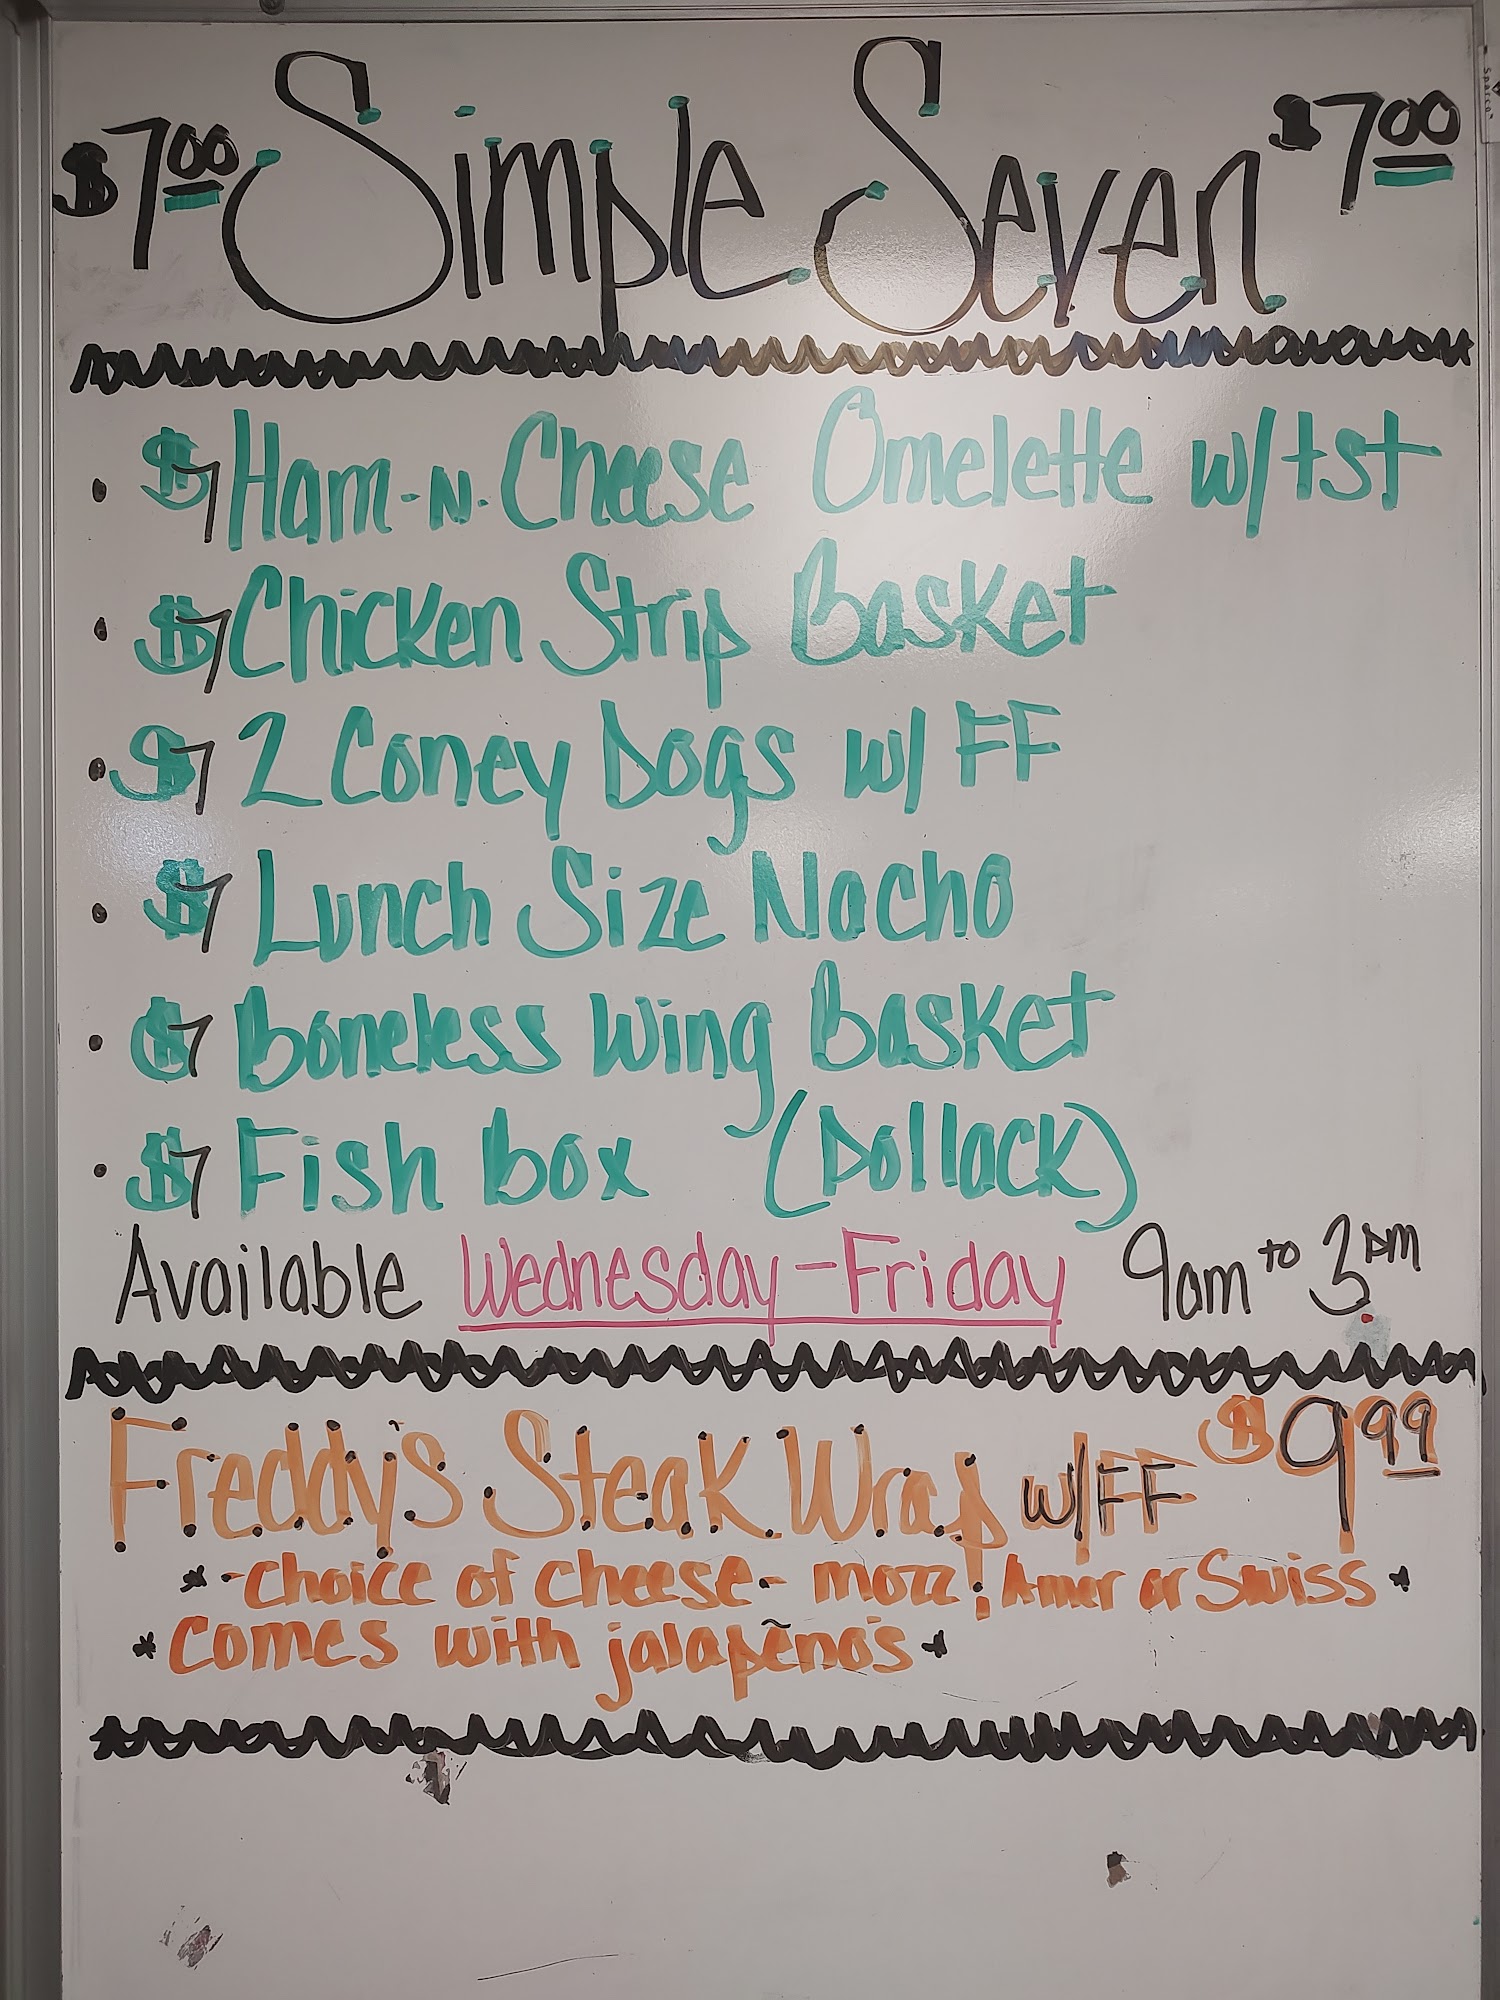 $7.00 Simple Seven $7.00
• $7 Ham-N-Cheese Omelette w/tst
• $7 Chicken Strip Basket
• $7 2 Coney Dogs w/ FF
• $7 Lunch Size Nacho
• $7 Boneless Wing Basket
• $7 Fish box (Pollack)
Available Wednesday-Friday 9am to 3pm
Freddy's Steak Wrap w/FF $9.99
*-choice of cheese- mozz! Amer or Swiss*
*comes with jalapeño's*